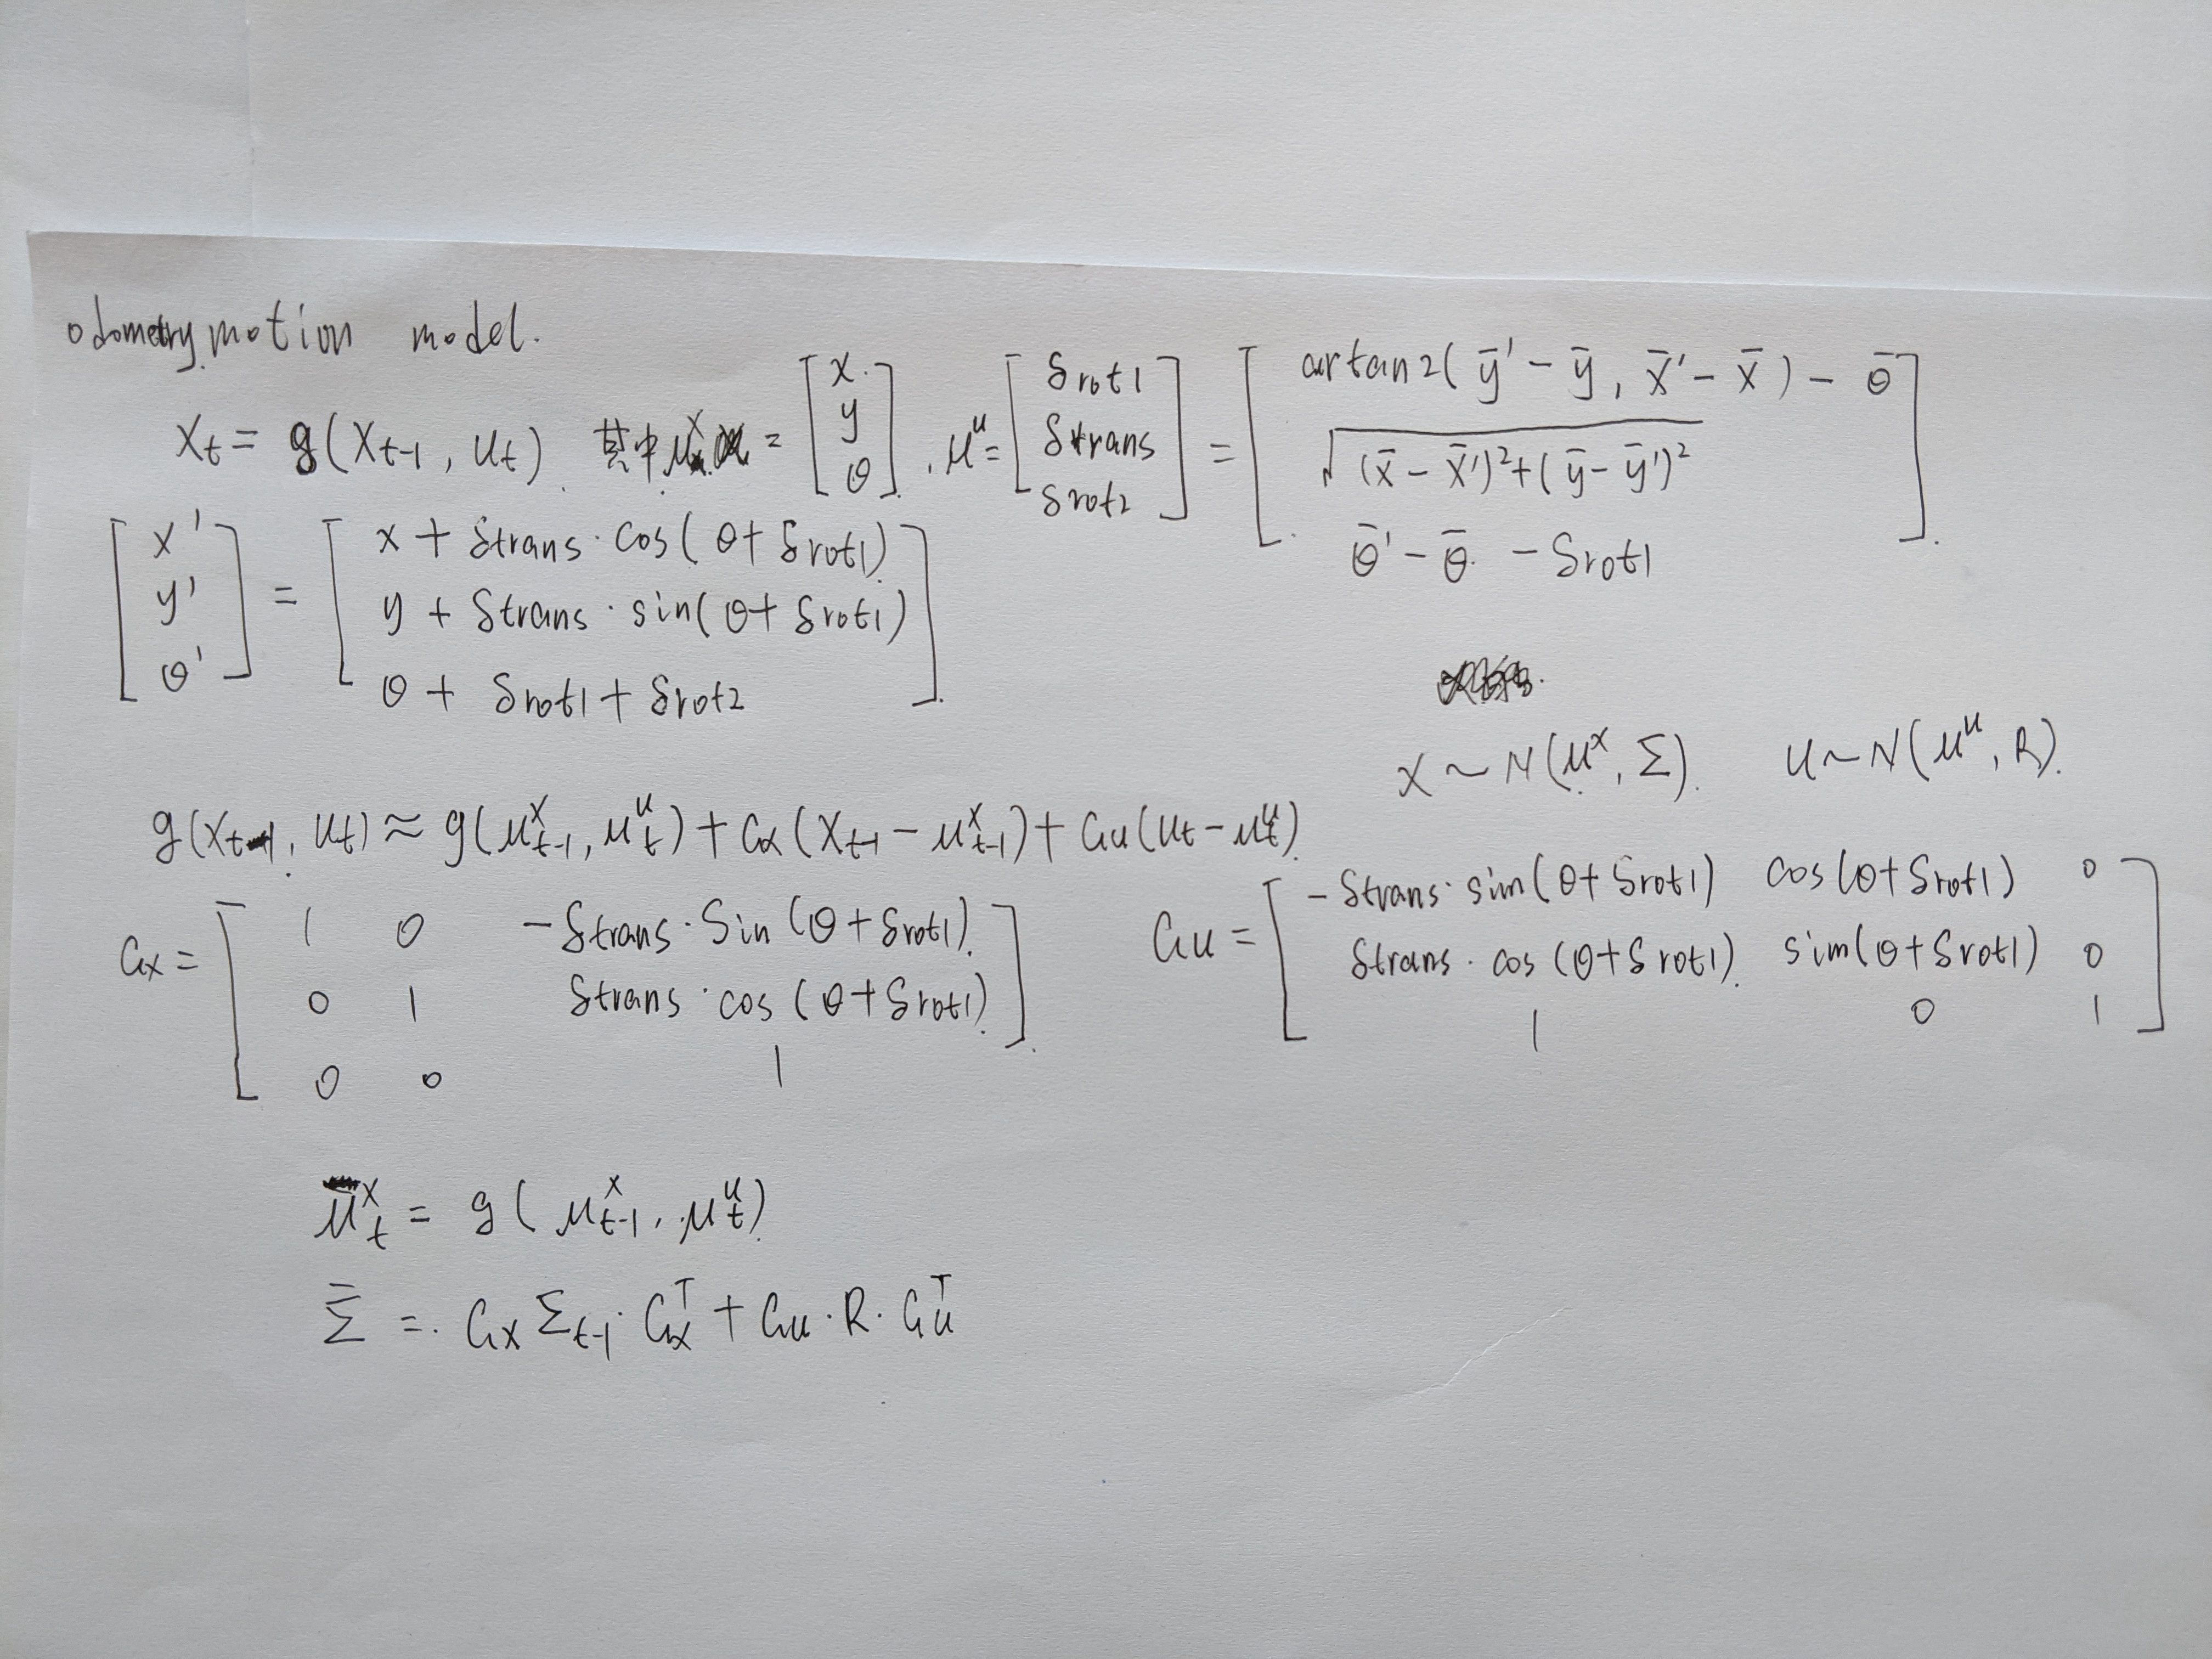 odometry motion model.
x_t = g(x_{t-1}, u_t) 其中 μ^x = [x y θ], μ^u = [δrot1 δtrans δrot2] = [artan2(ȳ' - ȳ, x̄' - x̄) - θ̄
√((x̄ - x̄')² + (ȳ - ȳ')²)
θ̄' - θ̄ - δrot1]
[x' y' θ'] = [x + δtrans · cos(θ + δrot1)
y + δtrans · sin(θ + δrot1)
θ + δrot1 + δrot2]
x ~ N(μ^x, Σ) u ~ N(μ^u, R)
g(x_{t-1}, u_t) ≈ g(μ^x_{t-1}, μ^u_t) + Gx(x_{t-1} - μ^x_{t-1}) + Gu(u_t - μ^u_t)
Gx = [1 0 -δtrans · sin(θ + δrot1)
0 1 δtrans · cos(θ + δrot1)
0 0 1]
Gu = [-δtrans · sin(θ + δrot1) cos(θ + δrot1) 0
δtrans · cos(θ + δrot1) sin(θ + δrot1) 0
1 0 1]
μ̄^x_t = g(μ^x_{t-1}, μ^u_t)
Σ̄ = Gx Σ_{t-1} · Gx^T + Gu · R · Gu^T